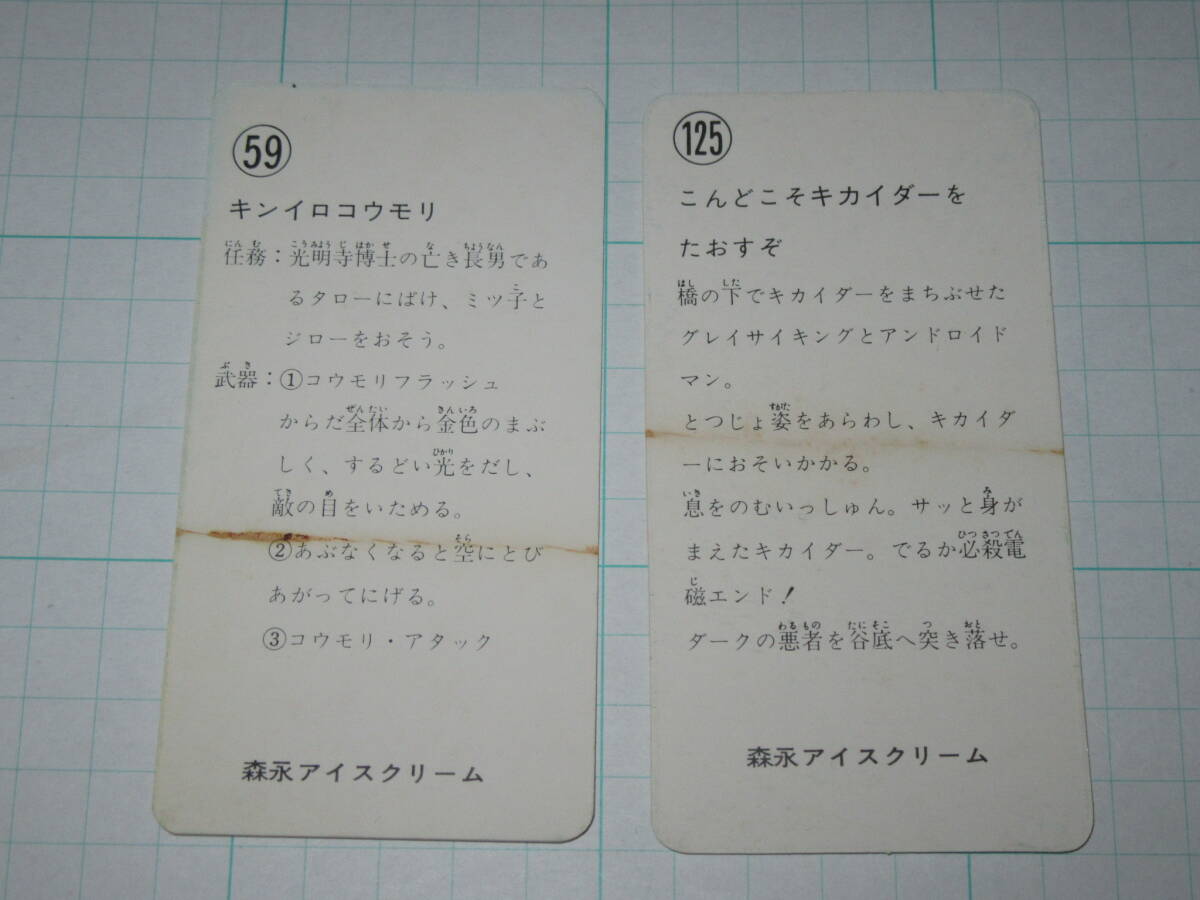 59
キンイロコウモリ
任務：光明寺博士の亡き長男であ
るタローにばけ、ミツ子と
ジローをおそう。
武器：①コウモリフラッシュ
からだ全体から金色のまぶ
しく、するどい光をだし、
敵の目をいためる。
②あぶなくなると空にとび
あがってにげる。
③コウモリ・アタック
森永アイスクリーム
125
こんどこそキカイダーを
たおすぞ
橋の下でキカイダーをまちぶせた
グレイサイキングとアンドロイド
マン。
とつじょ姿をあらわし、キカイダ
ーにおそいかかる。
息をのむいっしゅん。サッと身が
まえたキカイダー。でるか必殺電
磁エンド！
ダークの悪者を谷底へ突き落せ。
森永アイスクリーム